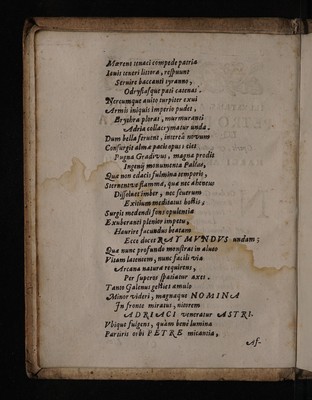 Mœrens tenaci compede patria
Iouis teneri littora, respuunt
Seruire baccanti tyranno,
Odrysiasque pati catenas.
Nereumque auito turpiter exui
Armis iniquis imperio pudet,
Erythra plorat, murmuranti
Adria collacrymatur unda.
Dum bella feruent, interea nouum
Consurgit almæ pacis opus: ciet
Pugna Gradiuus, magna prodit
Ingenij monumenta Pallas,
Qua non edacis fulmina temporis,
flammæ, quæ nec aheneus
Dissoluet imber, nec seuerum
Exitium meditatus hostis,
Surgis medendi fons opulentia
Exuberanti plenior impetu,
Haurire facundus beatam
Ecce docet RAYMVNDVS undam;
Qua nunc profundo monstrat in alueo
Vitam latentem, nunc facili via
Arcana naturæ requirens,
Per superos spatiatur axes.
Tanto Galenus gestiet æmulo
Minor videri, magnaque NOMINA
In fronte miratus, nitorem
ADRIACI veneratur ASTRI.
Vbique fulgens, quàm bene lumina
Partiris orbi PETRE micantia,
Af-